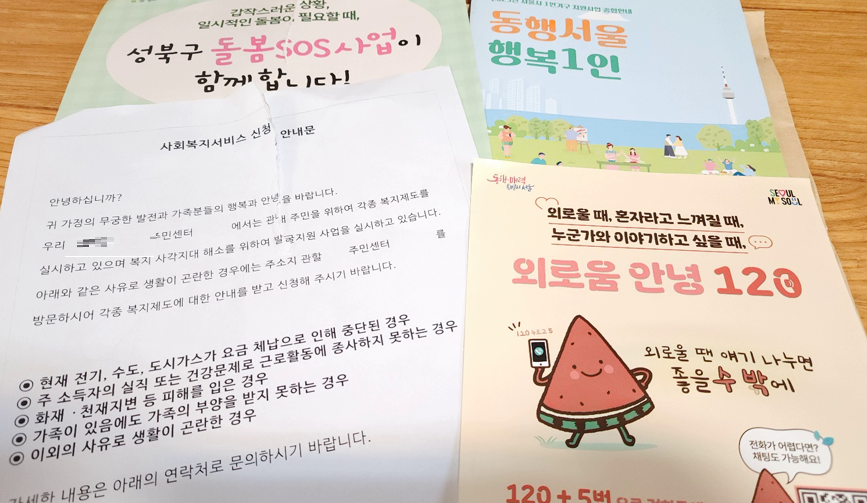 갑작스러운 상황,
일시적인 돌봄이 필요할 때,
성북구 돌봄SOS사업이
함께합니다!
동행서울
행복1인
사회복지서비스 신청 안내문
안녕하십니까?
귀 가정의 무궁한 발전과 가족분들의 행복과 안녕을 바랍니다.
우리 주민센터 에서는 관내 주민을 위하여 각종 복지제도를
실시하고 있으며 복지 사각지대 해소를 위하여 발굴지원 사업을 실시하고 있습니다.
아래와 같은 사유로 생활이 곤란한 경우에는 주소지 관할 주민센터 를
방문하시어 각종 복지제도에 대한 안내를 받고 신청해 주시기 바랍니다.
◉ 현재 전기, 수도, 도시가스가 요금 체납으로 인해 중단된 경우
◉ 주 소득자의 실직 또는 건강문제로 근로활동에 종사하지 못하는 경우
◉ 화재ㆍ천재지변 등 피해를 입은 경우
◉ 가족이 있음에도 가족의 부양을 받지 못하는 경우
◉ 이외의 사유로 생활이 곤란한 경우
자세한 내용은 아래의 연락처로 문의하시기 바랍니다.
동행·매력
특별시 서울
SEOUL
MY SOUL
외로울 때, 혼자라고 느껴질 때,
누군가와 이야기하고 싶을 때,
외로움 안녕 120
외로울 땐 얘기 나누면
좋을 수 박에
전화가 어렵다면?
채팅도 가능해요!
120 + 5번